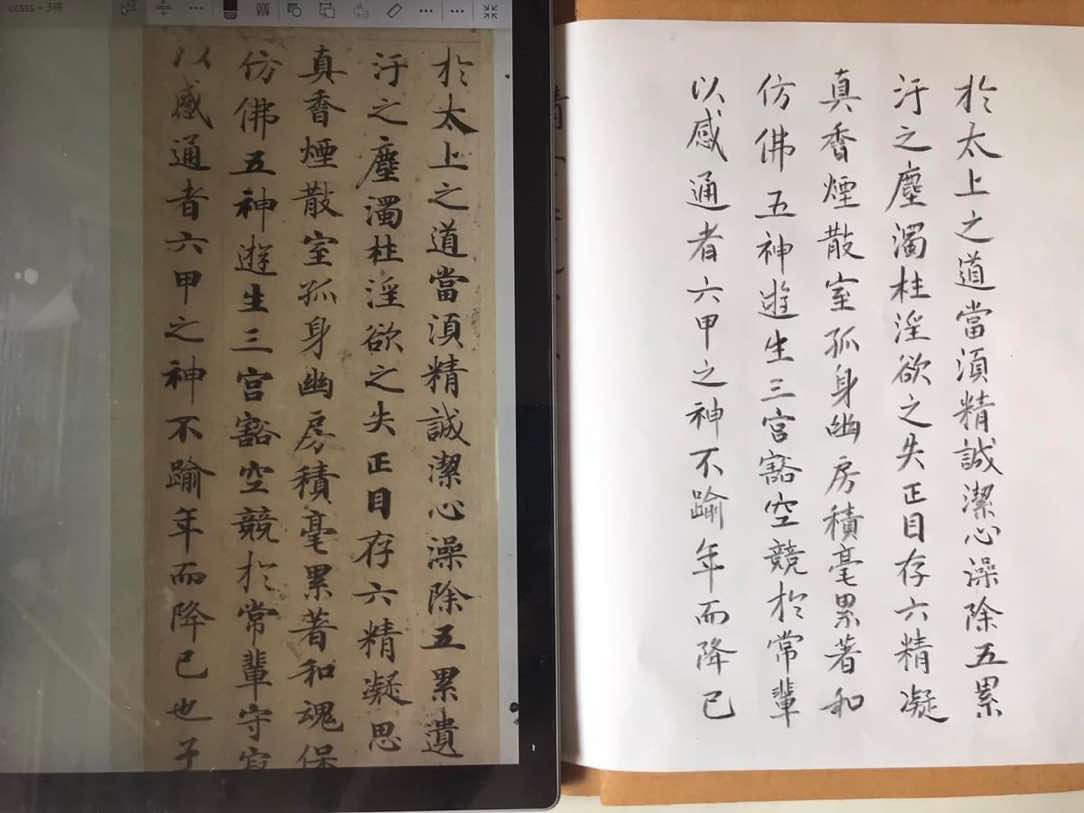 於太上之道當湏精誠潔心澡除五累遺
汙之塵濁柱淫欲之失正目存六精凝思
真香煙散室孤身幽房積毫累著和魂保
仿佛五神遊生三宮豁空競於常輩守寂
以感通者六甲之神不踰年而降已也子
於太上之道當湏精誠潔心澡除五累
汙之塵濁柱淫欲之失正目存六精凝
真香煙散室孤身幽房積毫累著和
仿佛五神遊生三宮豁空競於常輩
以感通者六甲之神不踰年而降已